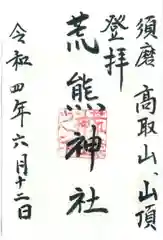 須磨 高取山、山頂
登拝
荒熊神社
令和四年六月十二日